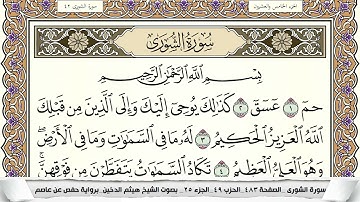 الجزء الخامس والعشرون
سورة الشورى ٤٢
سُورَةُ الشُّورَىٰ
بِسْمِ اللَّهِ الرَّحْمَٰنِ الرَّحِيمِ
حمٓ ١ عٓسٓقٓ ٢ كَذَٰلِكَ يُوحِيٓ إِلَيْكَ وَإِلَى الَّذِينَ مِن قَبْلِكَ
اللَّهُ الْعَزِيزُ الْحَكِيمُ ٣ لَهُۥ مَا فِي السَّمَٰوَٰتِ وَمَا فِي الْأَرْضِ ۖ
وَهُوَ الْعَلِيُّ الْعَظِيمُ ٤ تَكَادُ السَّمَٰوَٰتُ يَتَفَطَّرْنَ مِن فَوْقِهِنَّ ۚ
سورة الشورى _ الصفحة ٤٨٣ _ الحزب ٤٩ _ الجزء ٢٥ _ بصوت الشيخ هيثم الدخين _ برواية حفص عن عاصم